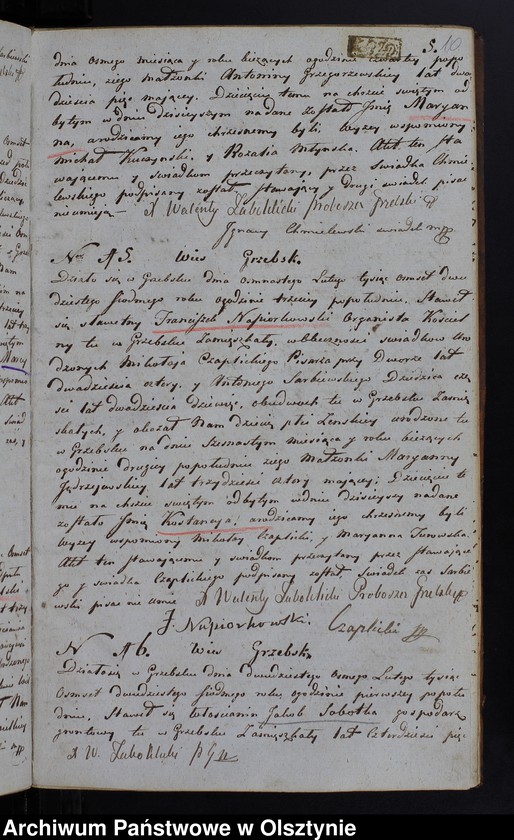 S. 10
dnia osmego miesiąca y roku bieżących ogodzinie czwartey popo
łudniu, ziego małżonki Antoniny Grzegorzewskiey lat dwa
dziescia pięc maiącey. Dziecięciu temu na chrzcie swiętym od
bytym w dniu dzisieyszym nadane zostało Jmię Maryan
na, a rodzicamy iego chrzesnemy byli wyzey wspomniony
Michał Kuczynski, y Rozalia Młynska. Akt ten sta
waiącemu y swiadkom przeczytany, przez Swiadka Chmie
lewskiego podpisany został, stawaiący y drugi swiadek pisac
nieumieią —
X Walenty Proboszcz Grebski
Jgnacy Chmielewski swiadek mpp
Nro 45. Wies Grzebsk.
Działo się w Grzebsku dnia osmnastego Lutego tysiąc osmset dwu
dziestego siodmego roku ogodzinie trzeciey popołudniu, Stawił
się sławetny Franciszek Napiorkowski Organista Koscieł
ny tu w Grzebsku Zamięszkały, w obecnosci swiadkow Uro
dzonych Mikołaja Czaplickiego Pisarza przy Dworze lat
dwadziescia cztery, y Antoniego Sarbiewskiego Dziedzica czę
sci lat dwadziescia dziewięc, obudwoch tu w Grzebsku Zamię
szkałych, y okazał Nam dziecię płci Zenskiey urodzone tu
w Grzebsku na dniu Szesnastym miesiąca y roku bieżących
ogodzinie drugiey popołudniu ziego Małżonki Maryanny
Jędrzejewskiey, lat trzydziesci cztery maiącey; Dziecięciu te
mu na chrzcie swiętym odbytym w dniu dzisieyszym nadane
zostało Jmię Kostancya, a rodzicamy iego chrzesnemy byli
wyzey wspomniony Mikołay Czaplicki, y Maryanna Turowska.
Akt ten stawaiącemu y swiadkom przeczytany przez stawaiące
go y swiadka Czaplickiego podpisany został, swiadek zas Sarbi
ewski pisac nie umie
X Walenty Proboszcz Grebski
F. Napiorkowski. Czaplicki
N 46. Wies Grzebsk.
Działo się w Grzebsku dnia dwudziestego Osmego Lutego tysiąc
Osmset dwudziestego siodmego roku ogodzinie pierwszey popołu
dniu, Stawił się włoscianin Jakob Sobotka gospodarz
gruntowy tu w Grzebsku Zamięszkały lat czterdziesci pięc
X W.
Archiwum Państwowe w Olsztynie